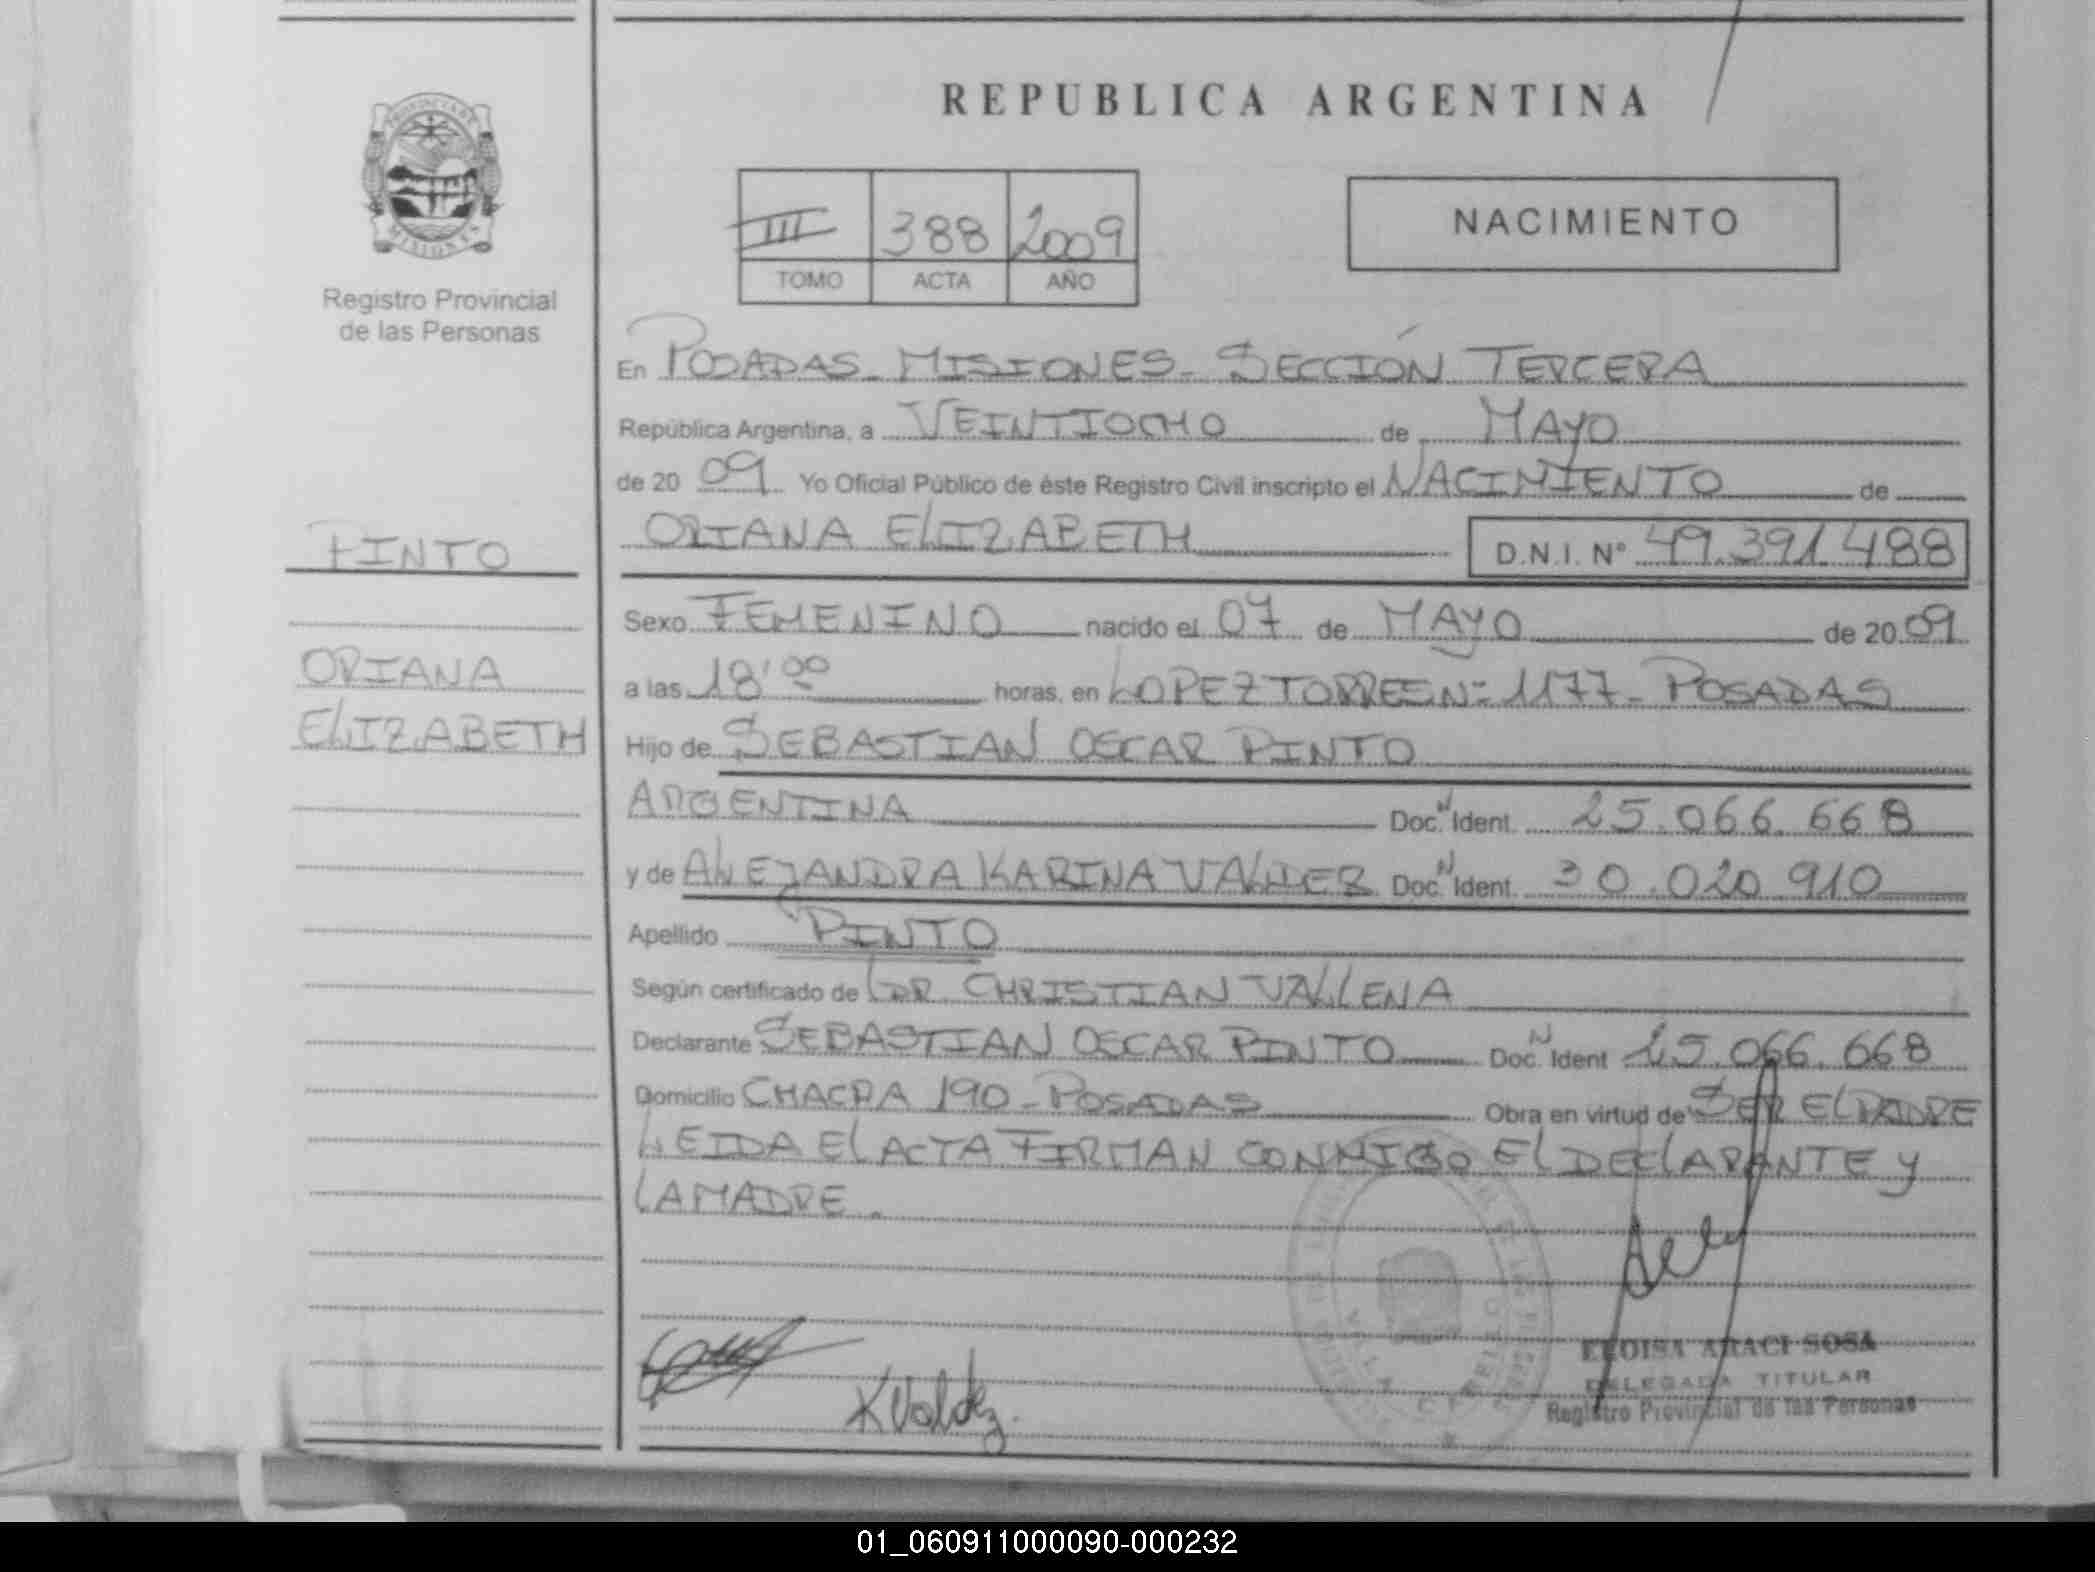 REPUBLICA ARGENTINA
PROVINCIA DE
MISIONES
Registro Provincial
de las Personas
III 388 2009
TOMO ACTA AÑO
NACIMIENTO
En POSADAS - MISIONES - SECCIÓN TERCERA
República Argentina, a VEINTIOCHO de MAYO
de 20 09 Yo Oficial Público de éste Registro Civil inscripto el NACIMIENTO de
ORIANA ELIZABETH D.N.I. N° 49.391.488
PINTO
ORIANA
ELIZABETH
Sexo FEMENINO nacido el 07 de MAYO de 20 09
a las 18'00 horas, en LOPEZ TORRES N= 1177 - POSADAS
Hijo de SEBASTIAN OSCAR PINTO
ARGENTINA Doc. N Ident. 25.066.668
y de ALEJANDRA KARINA VALDEZ Doc. N Ident. 30.020.910
Apellido PINTO
Según certificado de DR. CHRISTIAN VALLENA
Declarante SEBASTIAN OSCAR PINTO Doc. N Ident 25.066.668
Domicilio CHACRA 190 - POSADAS Obra en virtud de SER EL PADRE
LEIDA El ACTA FIRMAN CONMIGO El DEClARANTE y
LA MADRE.
K Valdez.
ELOISA ARACI SOSA
DELEGADA TITULAR
Registro Provincial de las Personas
01_060911000090-000232